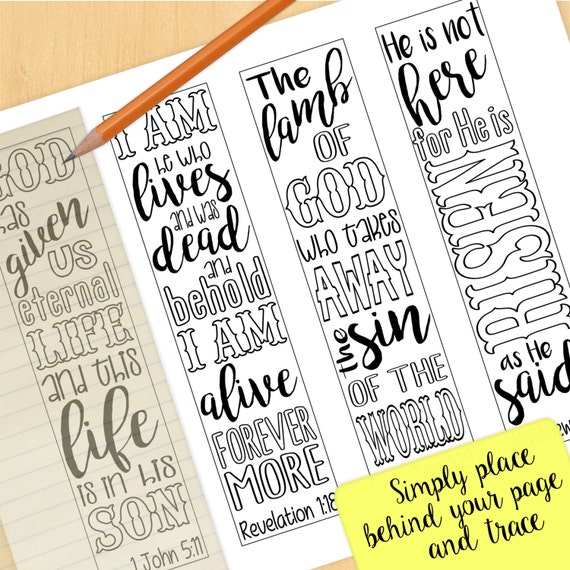 GOD
has
given
US
eternal
LIFE
and this
life
is in his
SON
1 John 5:11
I AM
he who
lives
and was
dead
and
behold
I AM
alive
FOREVER
MORE
Revelation 1:18
The
lamb
OF
GOD
who takes
AWAY
the sin
OF THE
WORLD
He is not
here
for He is
RISEN
as He
said
Simply place
behind your page
and trace